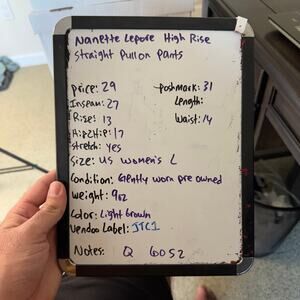 Nanette Lepore High Rise
Straight Pull on Pants
Price: 29
Poshmark: 31
Inseam: 27
Length:
Rise: 13
Waist: 14
Hip2Hip: 17
Stretch: Yes
Size: US Women's L
Condition: Gently worn pre owned
Weight: 9oz
Color: Light Brown
Vendoo Label: JTC1
Notes: Q 6052